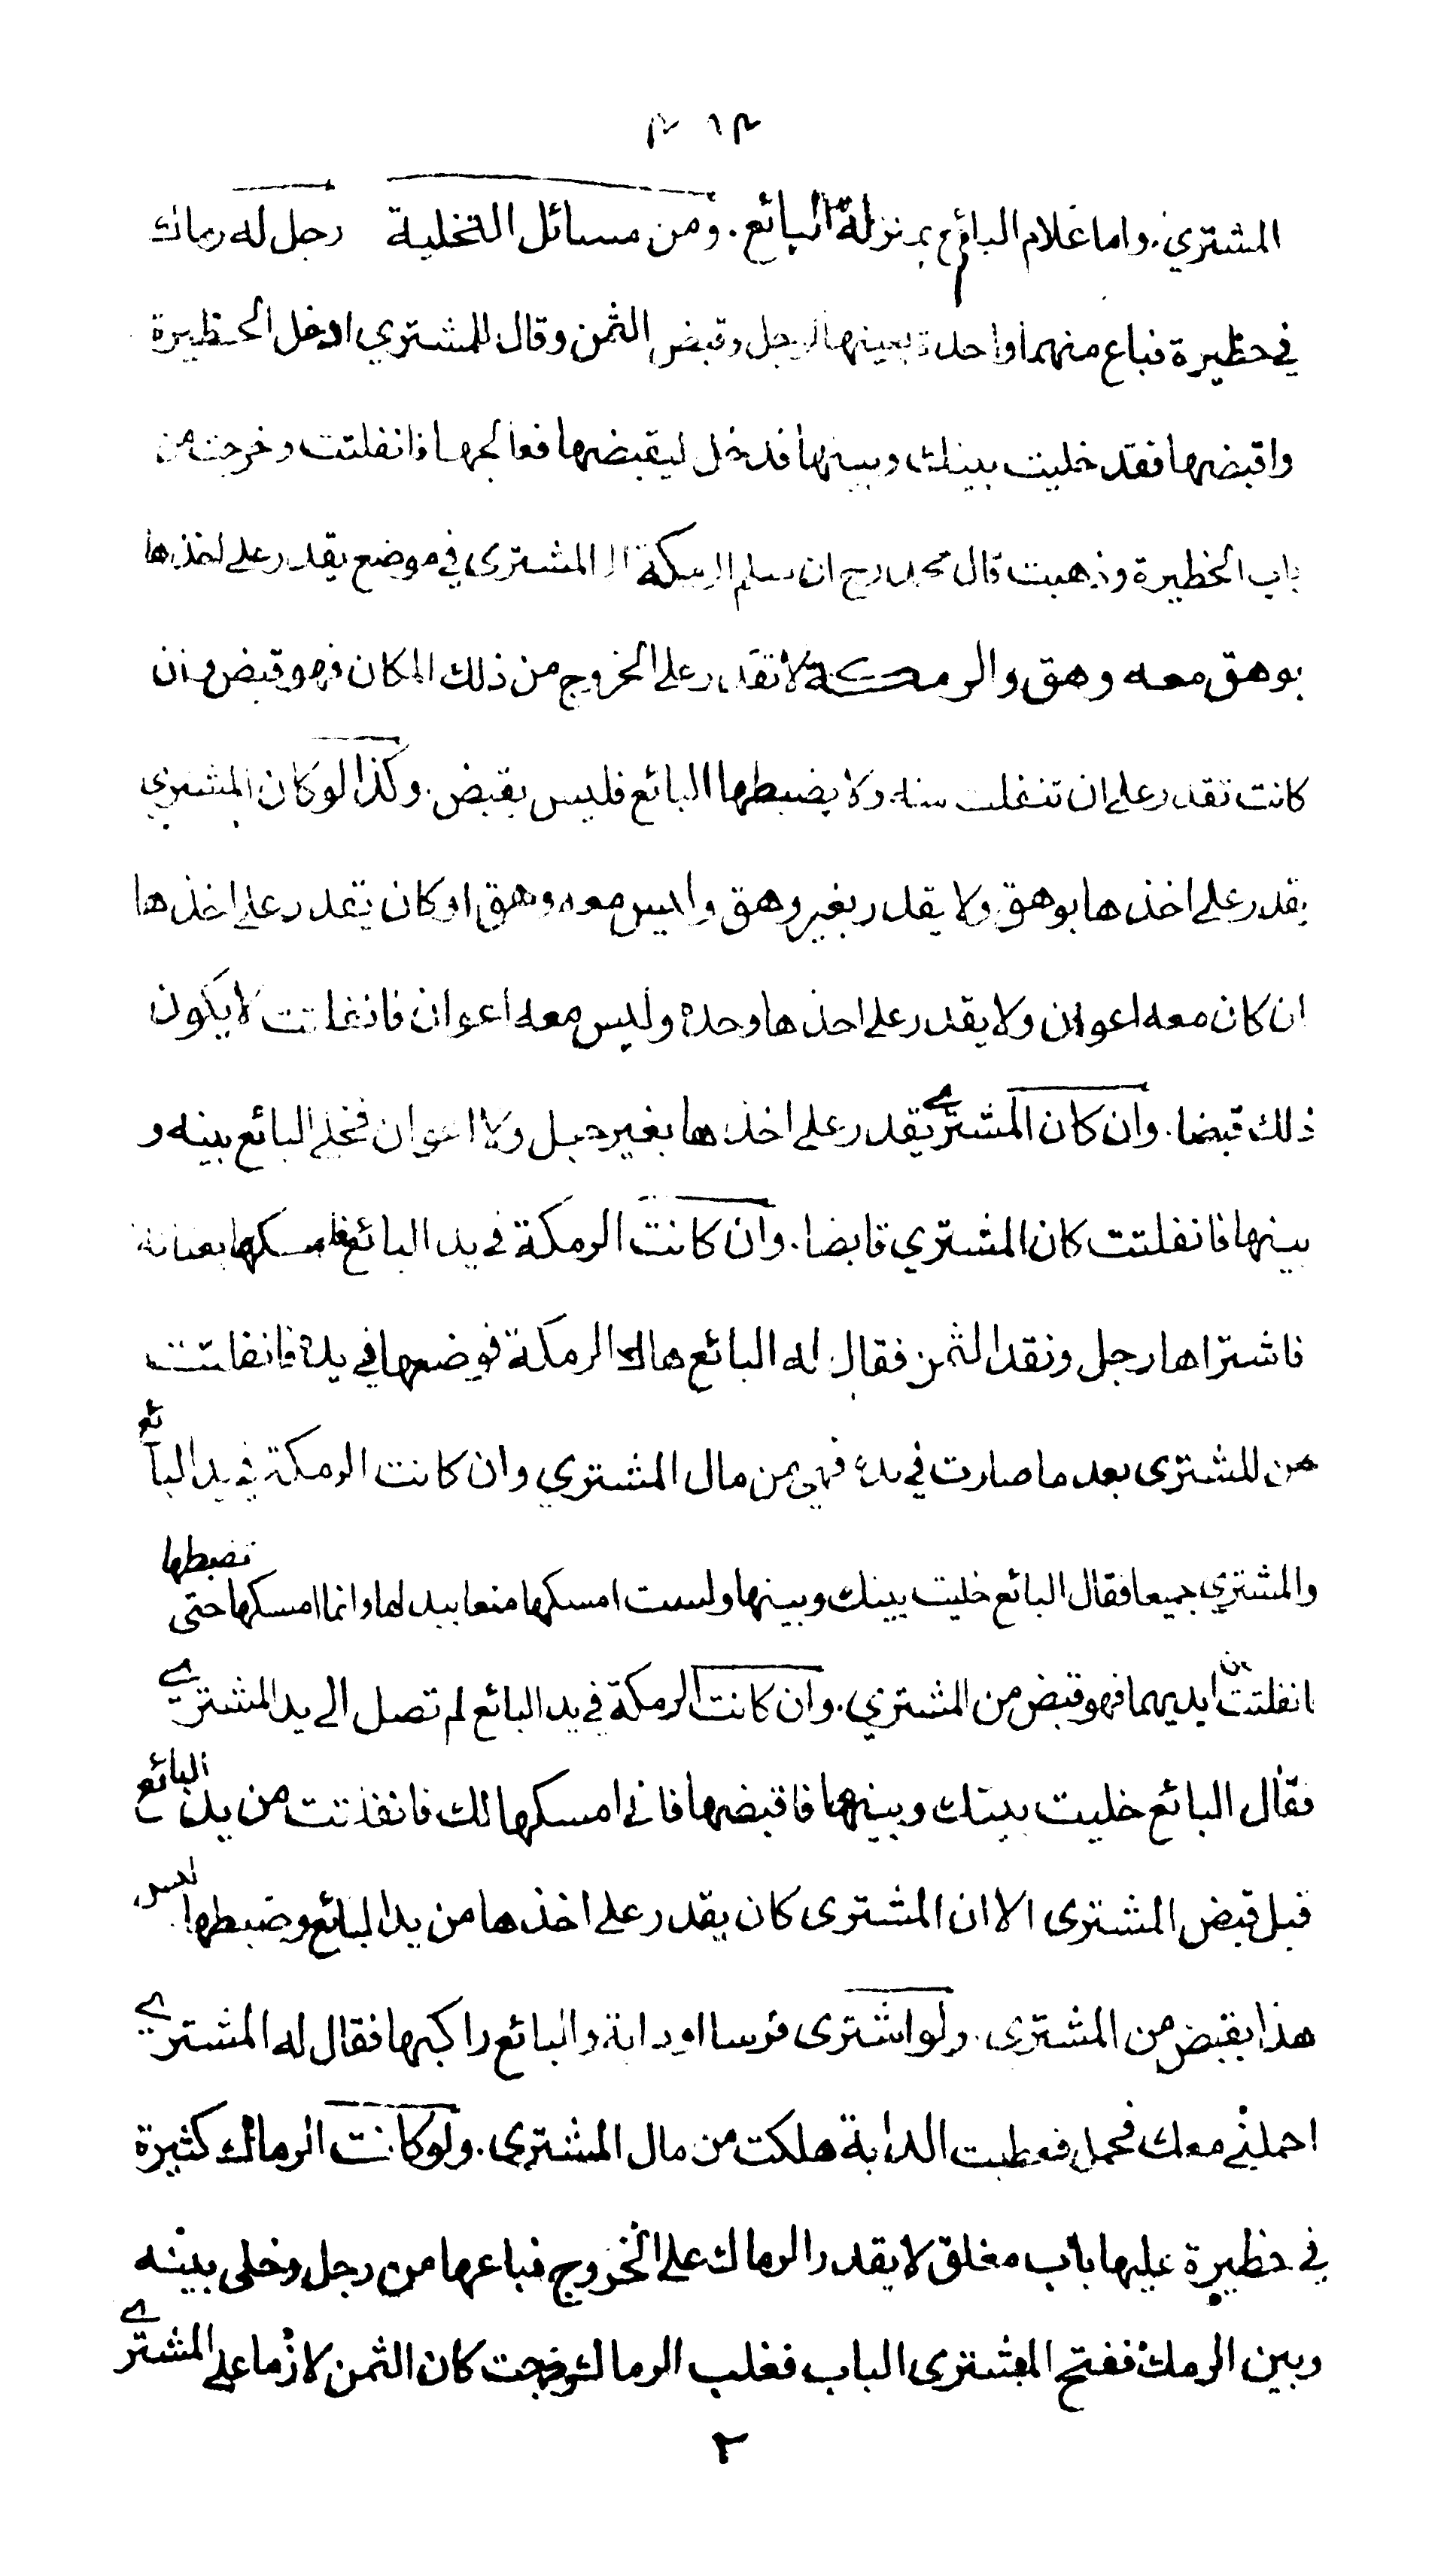 ٢١٢
المشتري. واما غلام البائع بمنزلة البائع. ومن مسائل التخلية رجل له رماك
في حظيرة فباع منهما واحدة بعينها لرجل وقبض الثمن وقال للمشتري ادخل الحظيرة
واقبضها فقد خليت بينك وبينها فدخل ليقبضها فعالجها فانفلتت وخرجت من
باب الحظيرة وذهبت قال محمد رح ان سلم الرمكة الى المشترى في موضع يقدر على اخذها
بوهق معه وهق والرمكة لا تقدر على الخروج من ذلك المكان فهو قبض وان
كانت تقدر على ان تنفلت منه ولا يضبطها البائع فليس بقبض. وكذا لو كان المشتري
يقدر على اخذها بوهق ولا يقدر بغير وهق وليس معه وهق او كان يقدر على اخذها
ان كان معه اعوان ولا يقدر على اخذها وحده وليس معه اعوان فانفلتت لا يكون
ذلك قبضا. وان كان المشتري يقدر على اخذها بغير حبل ولا اعوان فخلى البائع بينه و
بينها فانفلتت كان المشتري قابضا. وان كانت الرمكة في يد البائع فامسكها بعنانه
فاشتراها رجل ونقد الثمن فقال له البائع هاك الرمكة فوضعها في يده فانفلتت
من المشترى بعد ما صارت في يده فهي من مال المشتري وان كانت الرمكة في يد البائع
والمشتري جميعا فقال البائع خليت بينك وبينها ولست امسكها منعا بيد لها وانما امسكها حتى تضبطها
انفلتت من ايديهما فهو قبض من المشتري. وان كانت الرمكة في يد البائع لم تصل الى يد المشتري
فقال البائع خليت بينك وبينها فاقبضها فاني امسكها لك فانفلتت من يد البائع
قبل قبض المشترى الا ان المشترى كان يقدر على اخذها من يد البائع وضبطها ليس
هذا بقبض من المشترى. ولو اشترى فرسا او دابة والبائع راكبها فقال له المشتري
احملني معك فحمل فعطبت الدابة هلكت من مال المشترى. ولو كانت الرماك كثيرة
في حظيرة عليها باب مغلق لا يقدر الرماك على الخروج فباعها من رجل وخلى بينه
وبين الرمك ففتح المشترى الباب فغلب الرماك وخرجت كان الثمن لازما على المشتري
٢